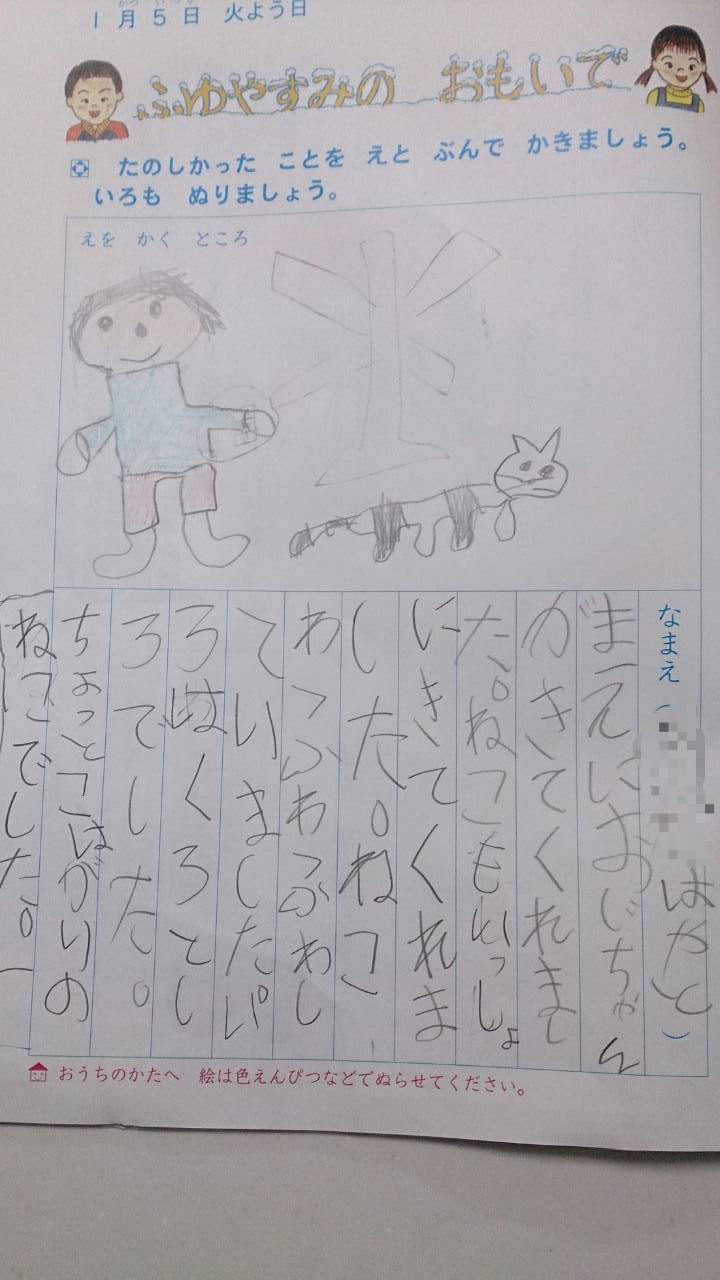 1月5日 火よう日
ふゆやすみの おもいで
たのしかった ことを えと ぶんで かきましょう。
いろも ぬりましょう。
えを かく ところ
なまえ（ はやと）
まえにおじちゃん
がきてくれまし
た。ねこもいっしょ
にきてくれま
した。ねこ
わふわふわし
ていました。
ろはくろとし
ろでした。
ちょっとこはがりの
ねこでした。
おうちのかたへ 絵は色えんぴつなどでぬらせてください。